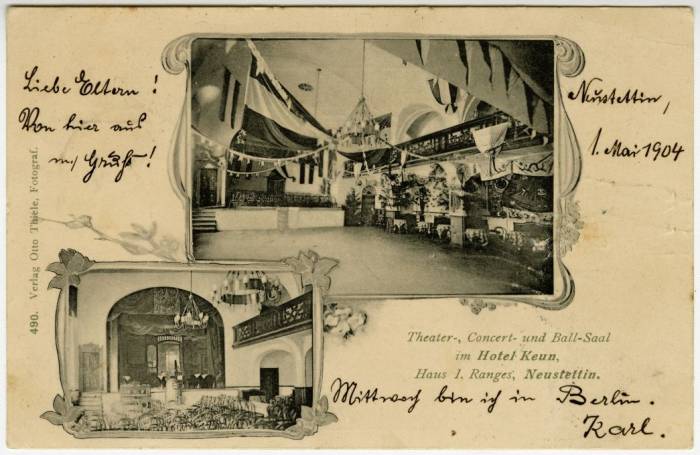 Liebe Eltern!
Von hier aus
Gruß!
Neustettin,
1. Mai 1904
490. Verlag Otto Thiele, Fotograf.
Theater-, Concert- und Ball-Saal
im Hotel Keun,
Haus 1. Ranges, Neustettin.
Mittwoch bin ich in Berlin.
Karl.